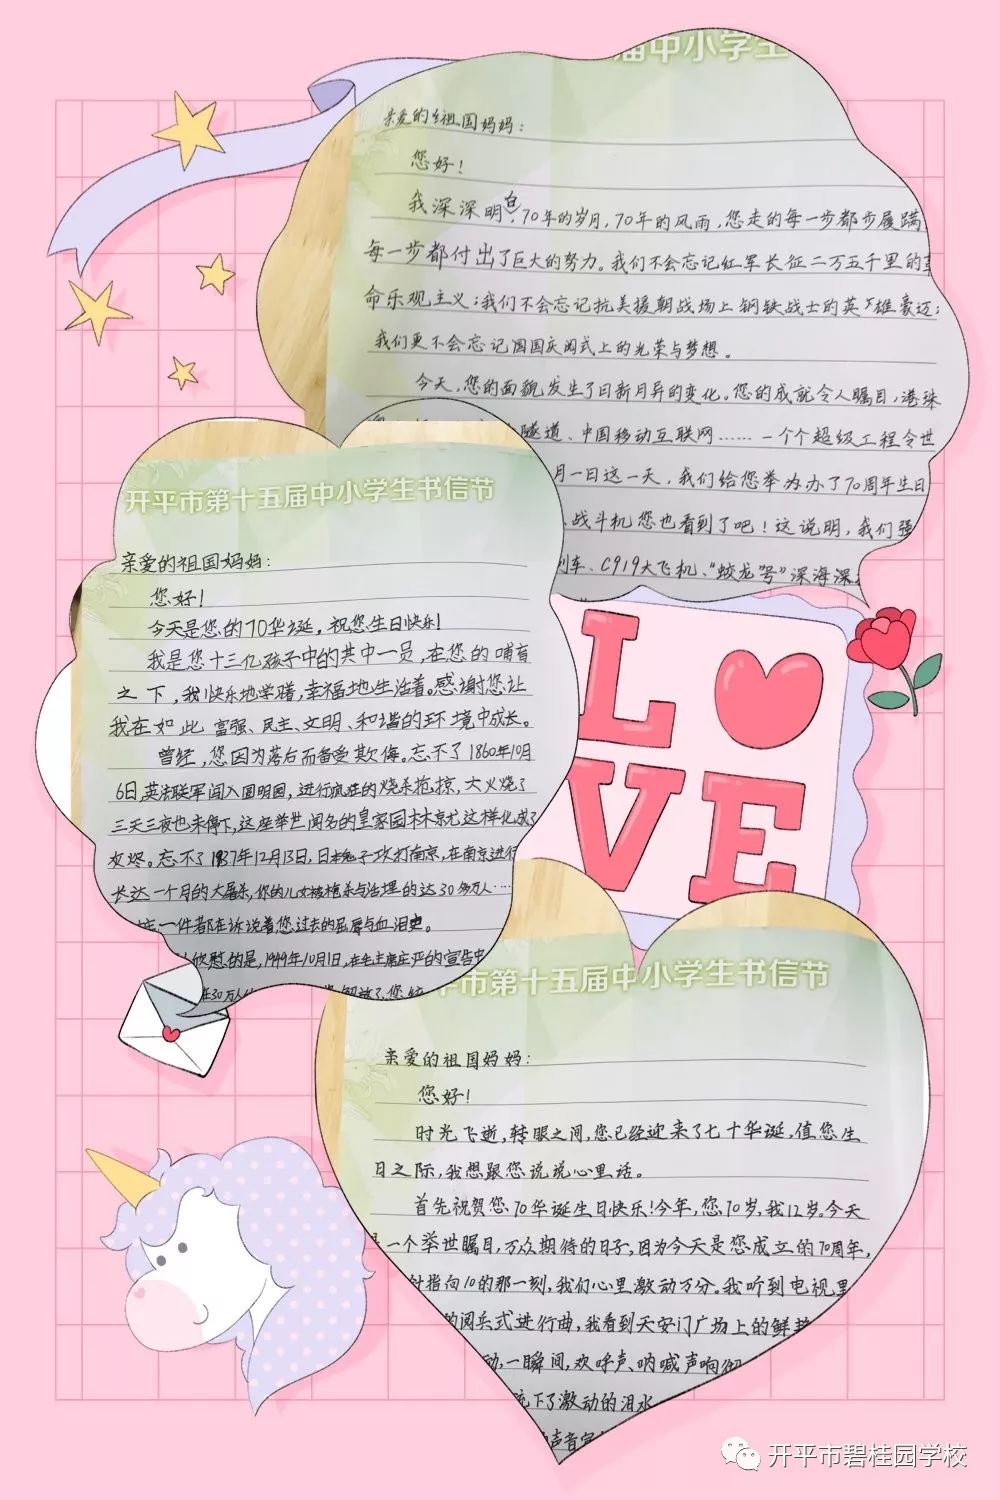 届中小学生
亲爱的祖国妈妈：
您好！
我深深明白，70年的岁月，70年的风雨，您走的每一步都步履蹒
每一步都付出了巨大的努力。我们不会忘记红军长征二万五千里的
命乐观主义；我们不会忘记抗美援朝战场上钢铁战士的英雄豪迈；
我们更不会忘记国庆阅式上的光荣与梦想。
今天，您的面貌发生了日新月异的变化。您的成就令人瞩目，港珠
隧道、中国移动互联网……一个个超级工程令世
月一日这一天，我们给您举办了70周年生日
战斗机您也看到了吧！这说明，我们强
列车、C919大飞机、“蛟龙号”深海深
开平市第十五届中小学生书信节
亲爱的祖国妈妈：
您好！
今天是您的70华诞，祝您生日快乐！
我是您十三亿孩子中的其中一员，在您的哺育
之下，我快乐地学着，幸福地生活着。感谢您让
我在如此富强、民主、文明、和谐的环境中成长。
曾经，您因为落后而备受欺侮。忘不了1860年10月
6日，英法联军闯入圆明园，进行疯狂的烧杀抢掠，大火烧了
三天三夜也未停下，这座举世闻名的皇家园林就这样化成了
灰烬。忘不了1937年12月13日，日本鬼子攻打南京，在南京进行
长达一个月的大屠杀，你的儿女被枪杀与活埋的达30多万人…
一件都在诉说着您过去的屈辱与血泪史。
欣慰的是，1949年10月1日，在毛主席庄严的宣告中
30万人
LOVE
平市第十五届中小学生书信节
亲爱的祖国妈妈：
您好！
时光飞逝，转眼之间，您已经迎来了七十华诞，值您生
日之际，我想跟您说说心里话。
首先祝贺您70华诞生日快乐！今年，您70岁，我12岁。今天
一个举世瞩目，万众期待的日子，因为今天是您成立的70周年，
针指向10的那一刻，我们心里激动万分。我听到电视里
的阅兵式进行曲，我看到天安门广场上的鲜
动，一瞬间，欢呼声、呐喊声响彻
流下了激动的泪水
声音宣
开平市碧桂园学校